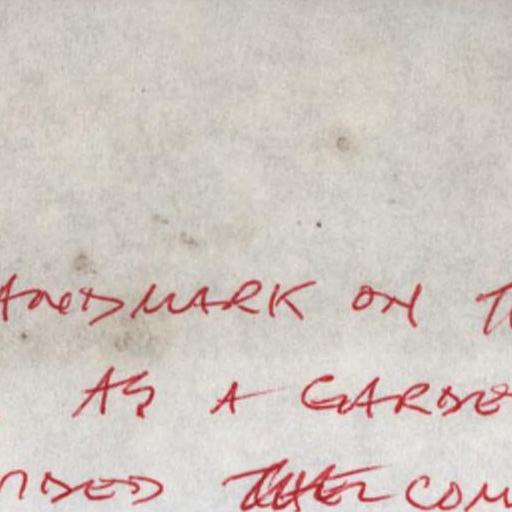 ANDMARK ON T
AS A GARDE
NDED THE COM